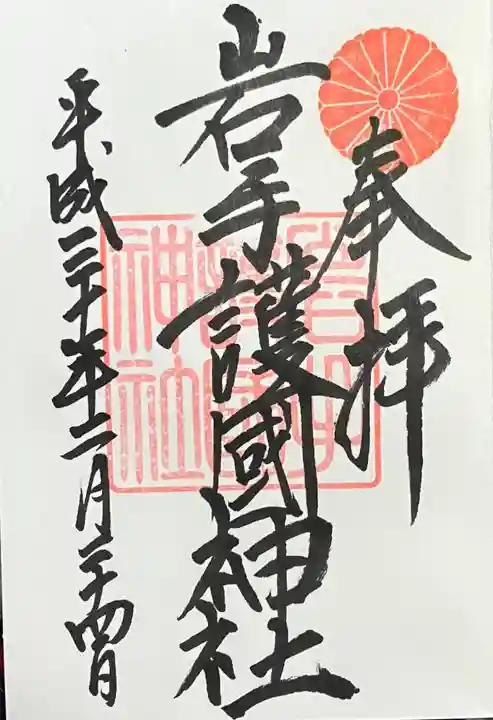 奉拝
岩手護國神社
岩手護國神社
平成三十年二月二十四日